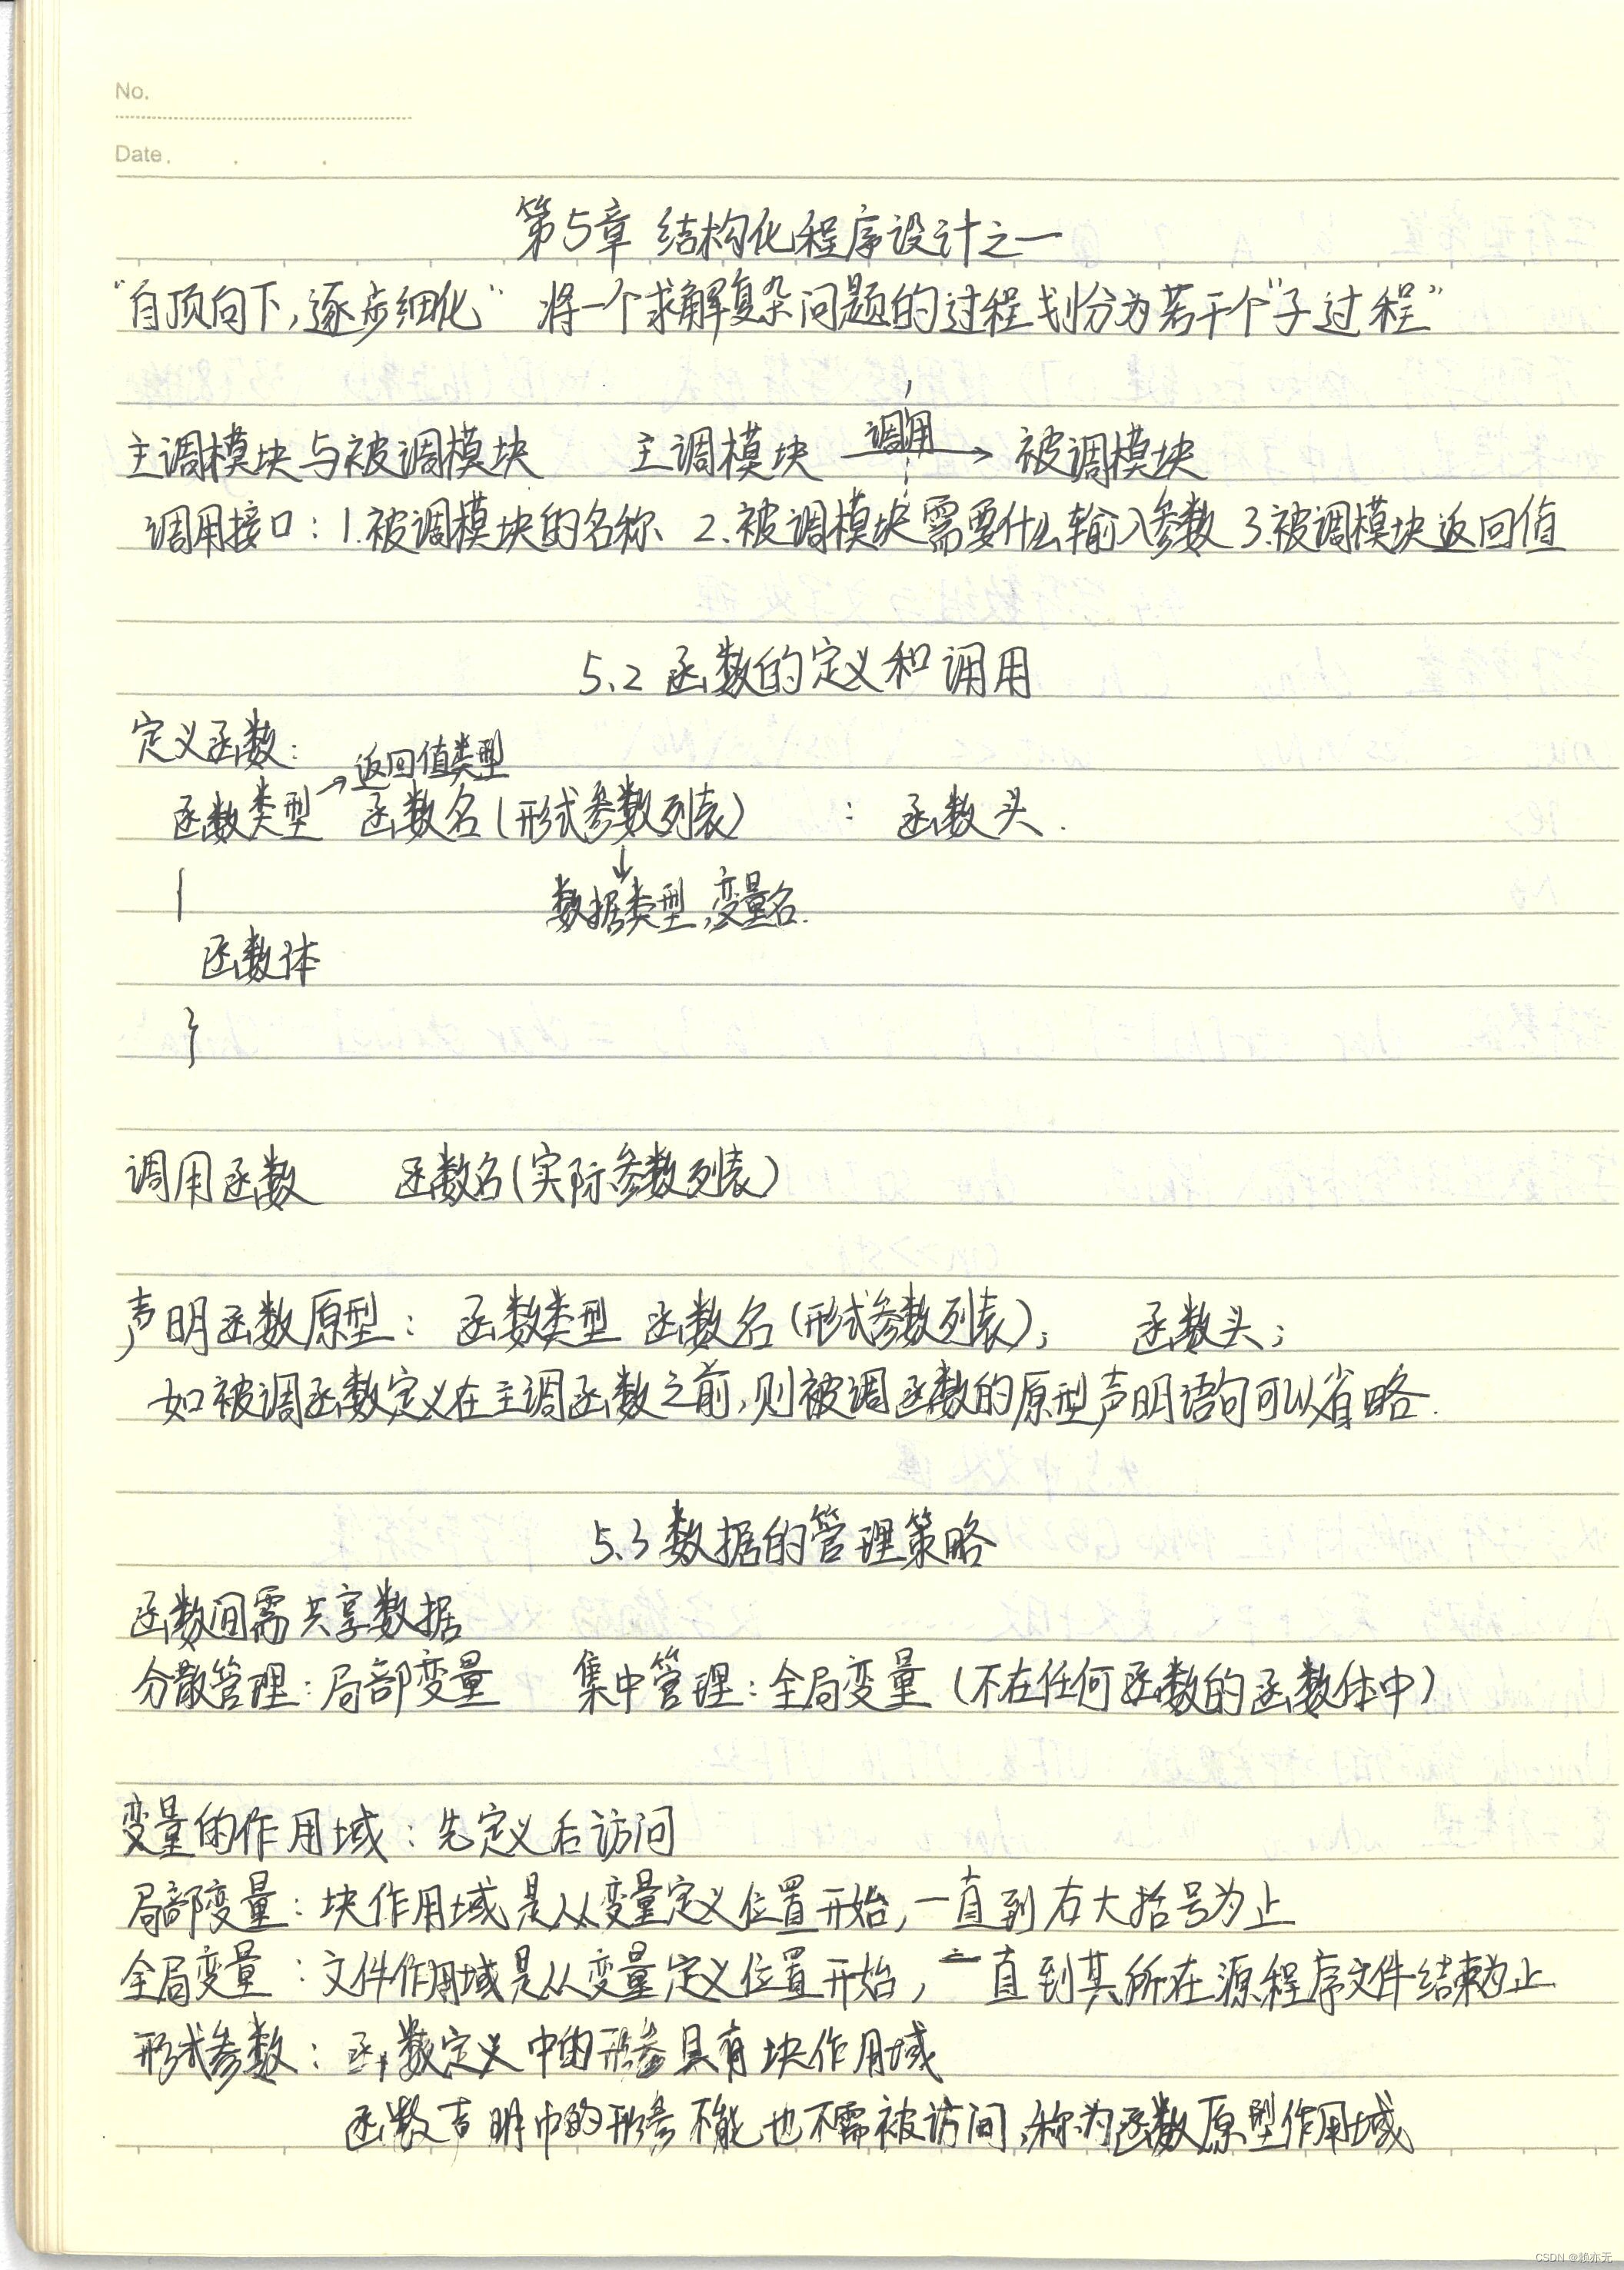 No.
Date.
第5章 结构化程序设计之一
"自顶向下,逐步细化" 将一个求解复杂问题的过程划分为若干个"子过程"
主调模块与被调模块 主调模块 调用→ 被调模块
调用接口：1.被调模块的名称 2.被调模块需要什么输入参数 3.被调模块返回值
5.2 函数的定义和调用
定义函数：
→返回值类型
函数类型 函数名(形式参数列表) ： 函数头.
↓
{ 数据类型,变量名.
函数体
}
调用函数 函数名(实际参数列表)
声明函数原型： 函数类型 函数名(形式参数列表); 函数头;
如被调函数定义在主调函数之前,则被调函数的原型声明语句可以省略.
5.3 数据的管理策略
函数间需共享数据
分散管理：局部变量 集中管理：全局变量(不在任何函数的函数体中)
变量的作用域：先定义后访问
局部变量：块作用域是从变量定义位置开始,一直到右大括号为止
全局变量：文件作用域是从变量定义位置开始,一直到其所在源程序文件结束为止
形式参数：函数定义中的形参具有块作用域
函数声明中的形参不能也不需被访问,称为函数原型作用域
CSDN @赖亦无